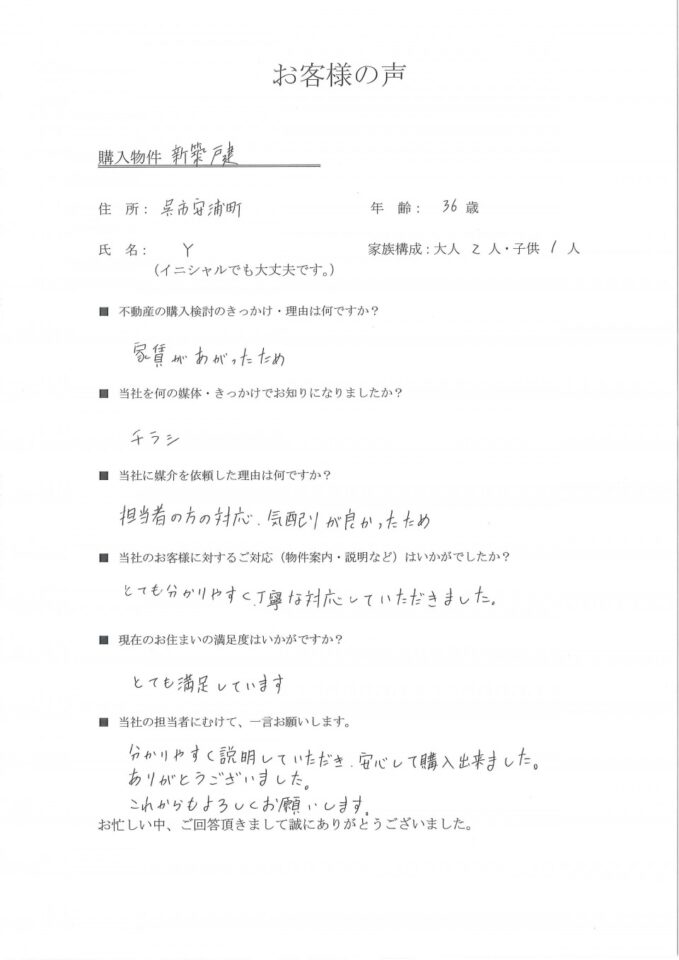 お客様の声
購入物件 新築戸建
住 所： 呉市安浦町 年 齢： 36 歳
氏 名： Y 家族構成：大人 2 人・子供 1 人
（イニシャルでも大丈夫です。）
■ 不動産の購入検討のきっかけ・理由は何ですか？
家賃があがったため
■ 当社を何の媒体・きっかけでお知りになりましたか？
チラシ
■ 当社に媒介を依頼した理由は何ですか？
担当者の方の対応、気配りが良かったため
■ 当社のお客様に対するご対応（物件案内・説明など）はいかがでしたか？
とても分かりやすく、丁寧な対応していただきました。
■ 現在のお住まいの満足度はいかがですか？
とても満足しています
■ 当社の担当者にむけて、一言お願いします。
分かりやすく説明していただき、安心して購入出来ました。
ありがとうございました。
これからもよろしくお願いします。
お忙しい中、ご回答頂きまして誠にありがとうございました。